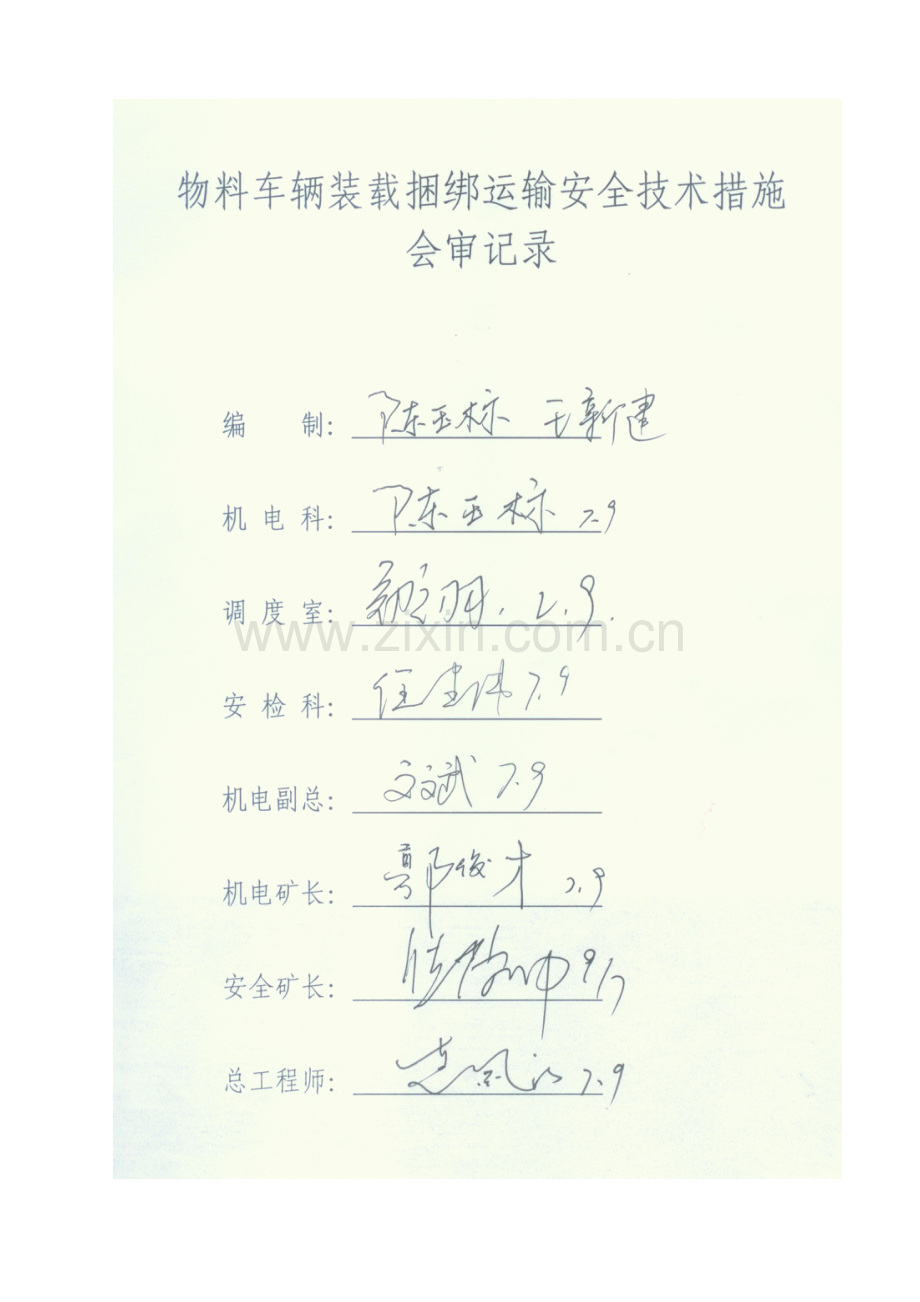 物料车辆装载捆绑运输安全技术措施
会审记录
编 制: 陈玉标 王新建
机 电 科: 陈玉标 7.9
调 度 室: 7.9.
www.zixin.com.cn
安 检 科: 7.9
机电副总: 文斌 7.9
机电矿长: 郭俊才 7.9
安全矿长: 9/7
总工程师: 7.9